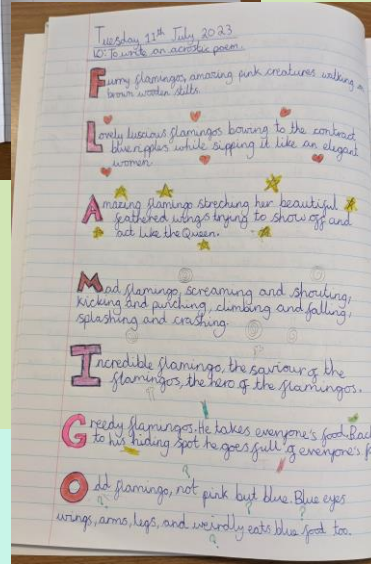 Tuesday 11th July 2023
LO: To write an acrostic poem.
Funny flamingos, amazing pink creatures walking on
brown wooden stilts.
Lovely luscious flamingos bowing to the
blue ripples while sipping it like an elegant
women.
Amazing flamingo streching her beautiful
feathered wings trying to show off and
act like the Queen.
Mad flamingo, screaming and shouting,
kicking and punching, climbing and falling,
splashing and crashing.
Incredible flamingo, the saviour of the
flamingos, the hero of the flamingos.
Greedy flamingos. He takes everyone's food. Back
to his hiding spot he goes full of everyone's
Odd flamingo, not pink but blue. Blue eyes
wings, arms, legs, and weirdly eats blue food too.